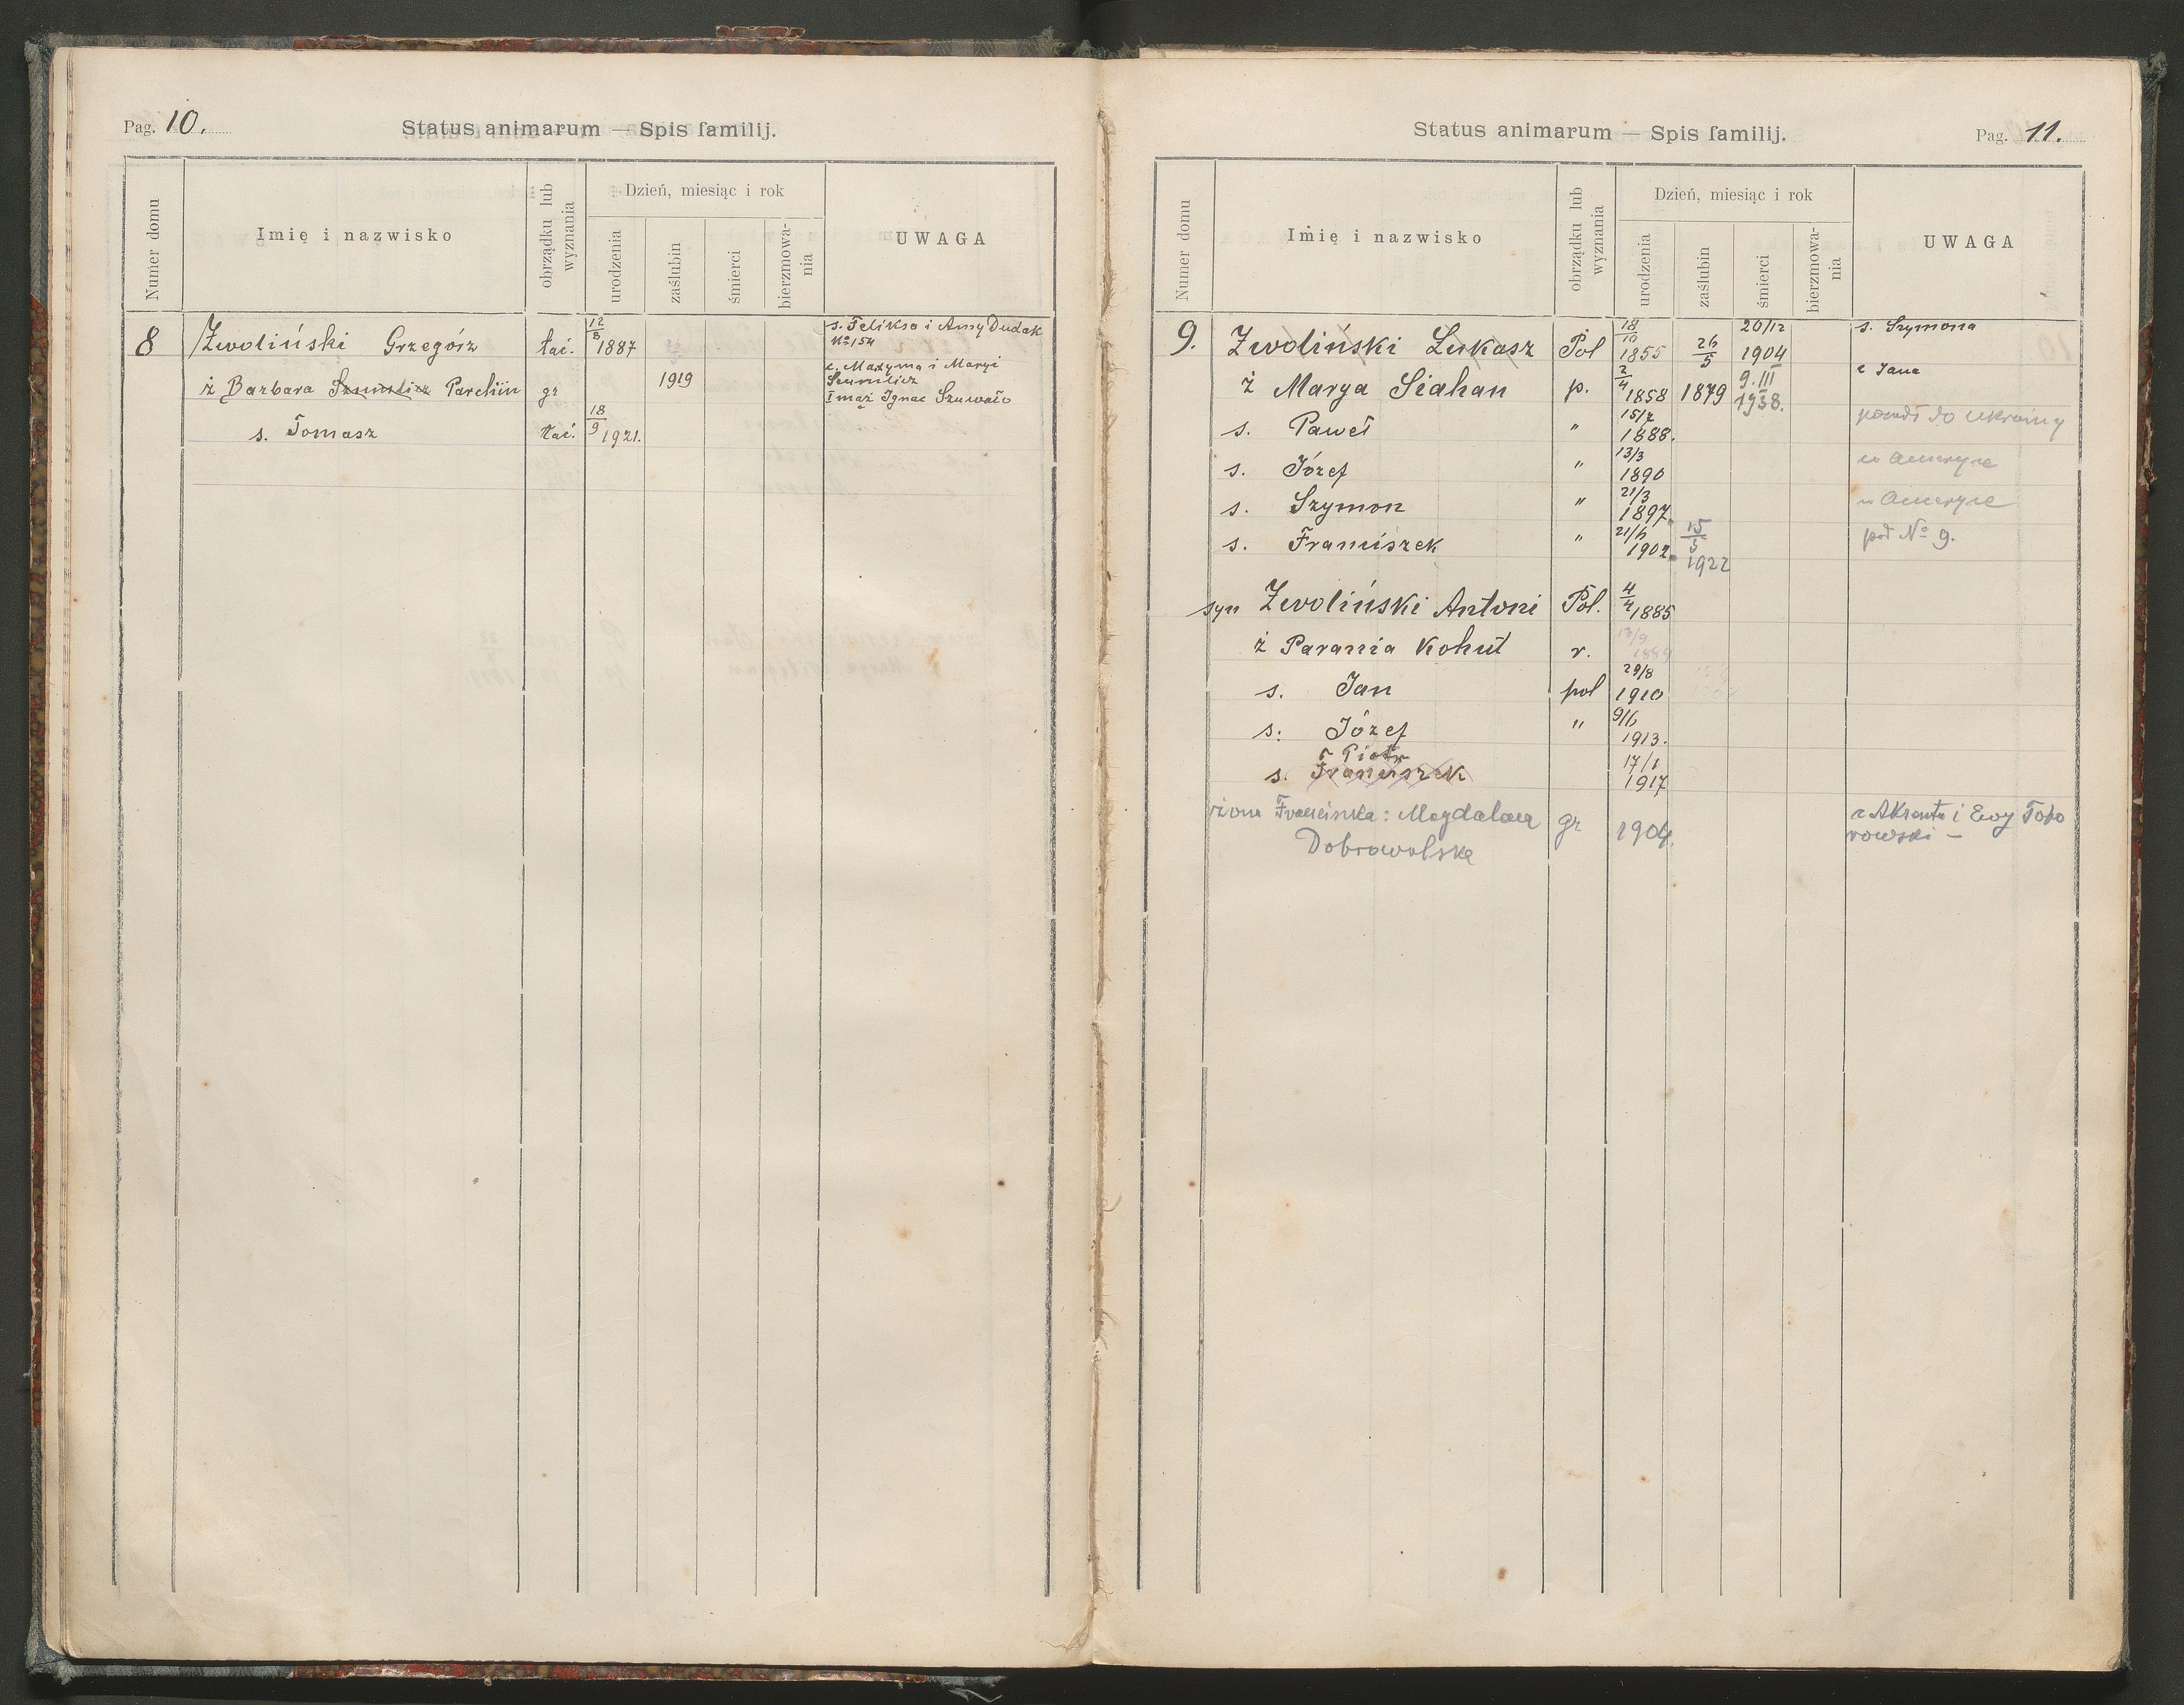 Pag. 10.
Status animarum — Spis familij.
Numer domu
Imię i nazwisko
obrządku lub wyznania
Dzień, miesiąc i rok
urodzenia
zaślubin
śmierci
bierzmowania
UWAGA
8 Zwoliński Grzegórz łać. 12/8 1887 s. Feliksa i Anny Dudak
No 154
ż Barbara Szumlicz Parchin gr 1919 c. Maxyma i Maryi
Szumlicz
I mąż Ignac
s. Tomasz łać. 18/9 1921.
Status animarum — Spis familij.
Pag. 11.
Numer domu
Imię i nazwisko
obrządku lub wyznania
Dzień, miesiąc i rok
urodzenia
zaślubin
śmierci
bierzmowa-
nia
UWAGA
9. Zwoliński Łukasz Pol 18/10 1855 26/5 20/12 1904 s. Szymona
ż Marya Siahan p. 2/4 1858 1879 9.III 1938. c Jana
s. Paweł " 15/7 1888. do Ukrainy
s. Józef " 13/3 1890 w Ameryce
s. Szymon " 21/3 1897. w Ameryce
s. Franciszek " 21/6 1902. 15/5 1922 pod No 9.
syn Zwoliński Antoni Pol. 4/4 1885
ż Parania Kohut r. 13/9 1889
s. Jan pol 29/8 1910
s. Józef " 9/6 1913.
Piotr
s. Franciszek 17/1 1917
żona Franciszka: Magdalena gr 1904. i Ewy Topo
Dobrowolska rowski —